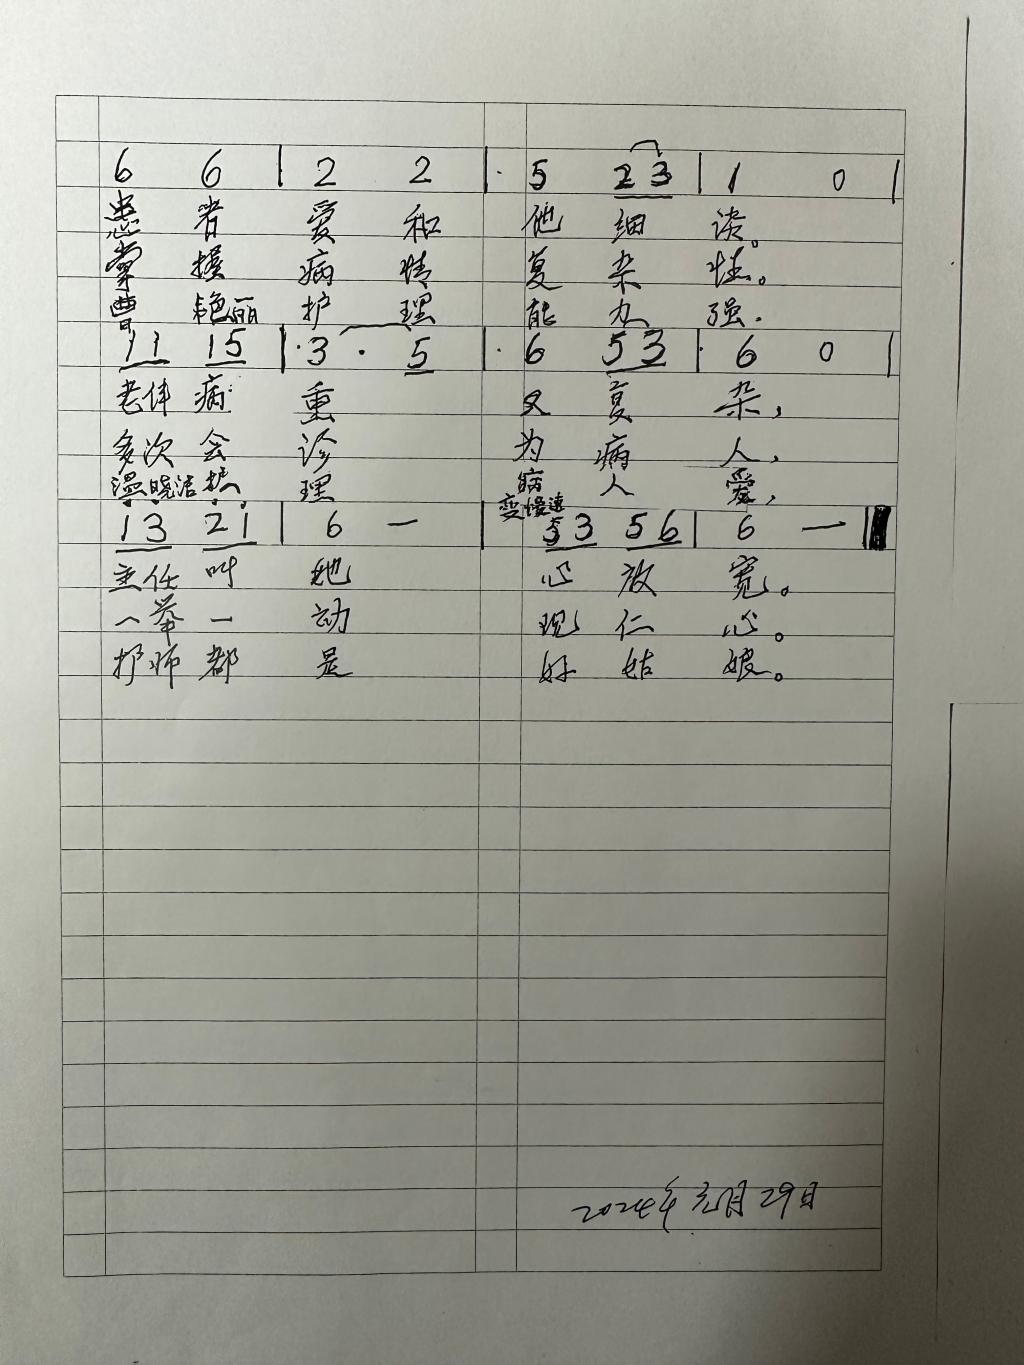 6 6 | 2 2 | 5 2 3 | 1 0 |
患者爱和他细谈。
掌握病情复杂性。
曹艳丽护理能力强.
1 1 1 5 | 3 · 5 | 6 5 3 | 6 0 |
老伴病重又复杂,
多次会诊为病人,
温晓洁护理病人爱,
变慢速
1 3 2 1 | 6 — | 5 3 5 6 | 6 — ‖
主任叫她心放宽。
一举一动现仁心。
护师都是好姑娘。
2024年元月29日